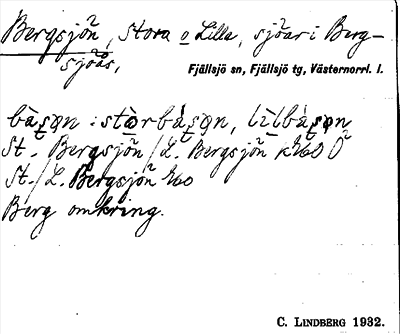 Bergsjön, Stora o Lilla, sjöar i Berg-
sjöås,
Fjällsjö sn, Fjällsjö tg, Västernorrl. l.
St. Bergsjön / L. Bergsjön
St./L. Bergsjön
Berg omkring.
C. LINDBERG 1932.